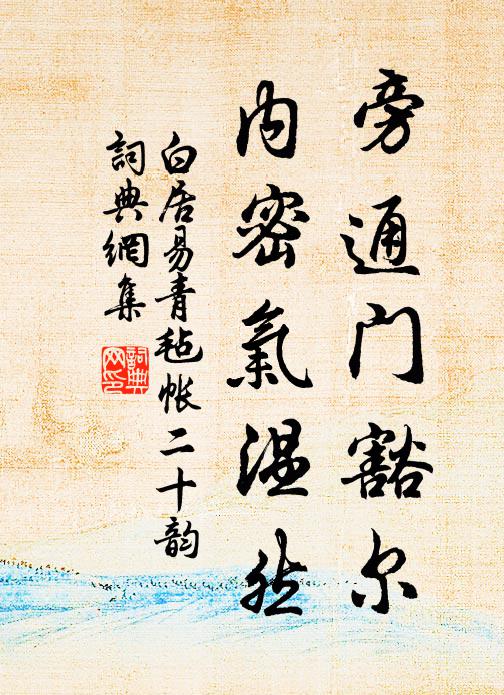 旁通门豁尔
内密氣温然
白居易青毡帐二十韵
詞典網集
詞典
网印